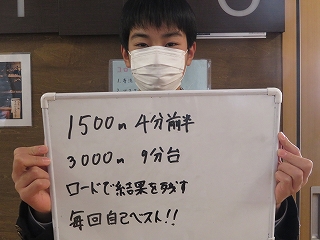 1500m 4分前半
3000m 9分台
ロードで結果を残す
毎回自己ベスト!!